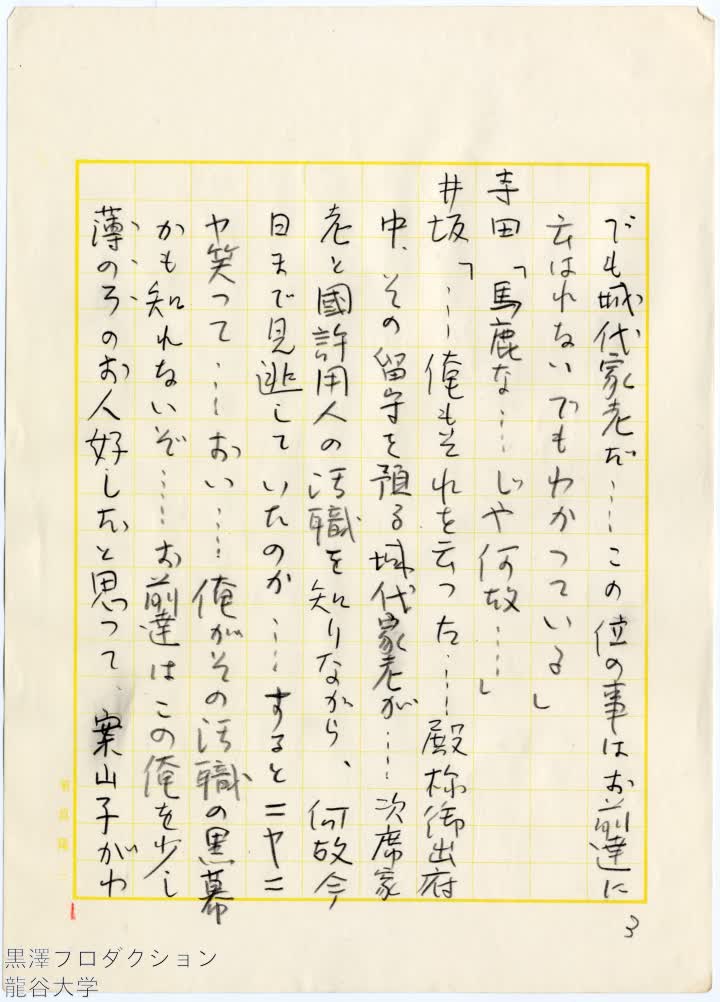 でも城代家老だ……この位の事はお前達に
云はれないでもわかつている」
寺田「馬鹿な……じや何故……」
井坂「……俺もそれを云つた……殿様御出府
中、その留守を預る城代家老が……次席家
老と國許用人の汚職を知りながら、何故今
日まで見逃していたのか……するとニヤニ
ヤ笑つて……おい……俺がその汚職の黒幕
かも知れないぞ……お前達はこの俺を少し
薄のろのお人好しだと思つて、案山子がわ
3
黒澤プロダクション
龍谷大学